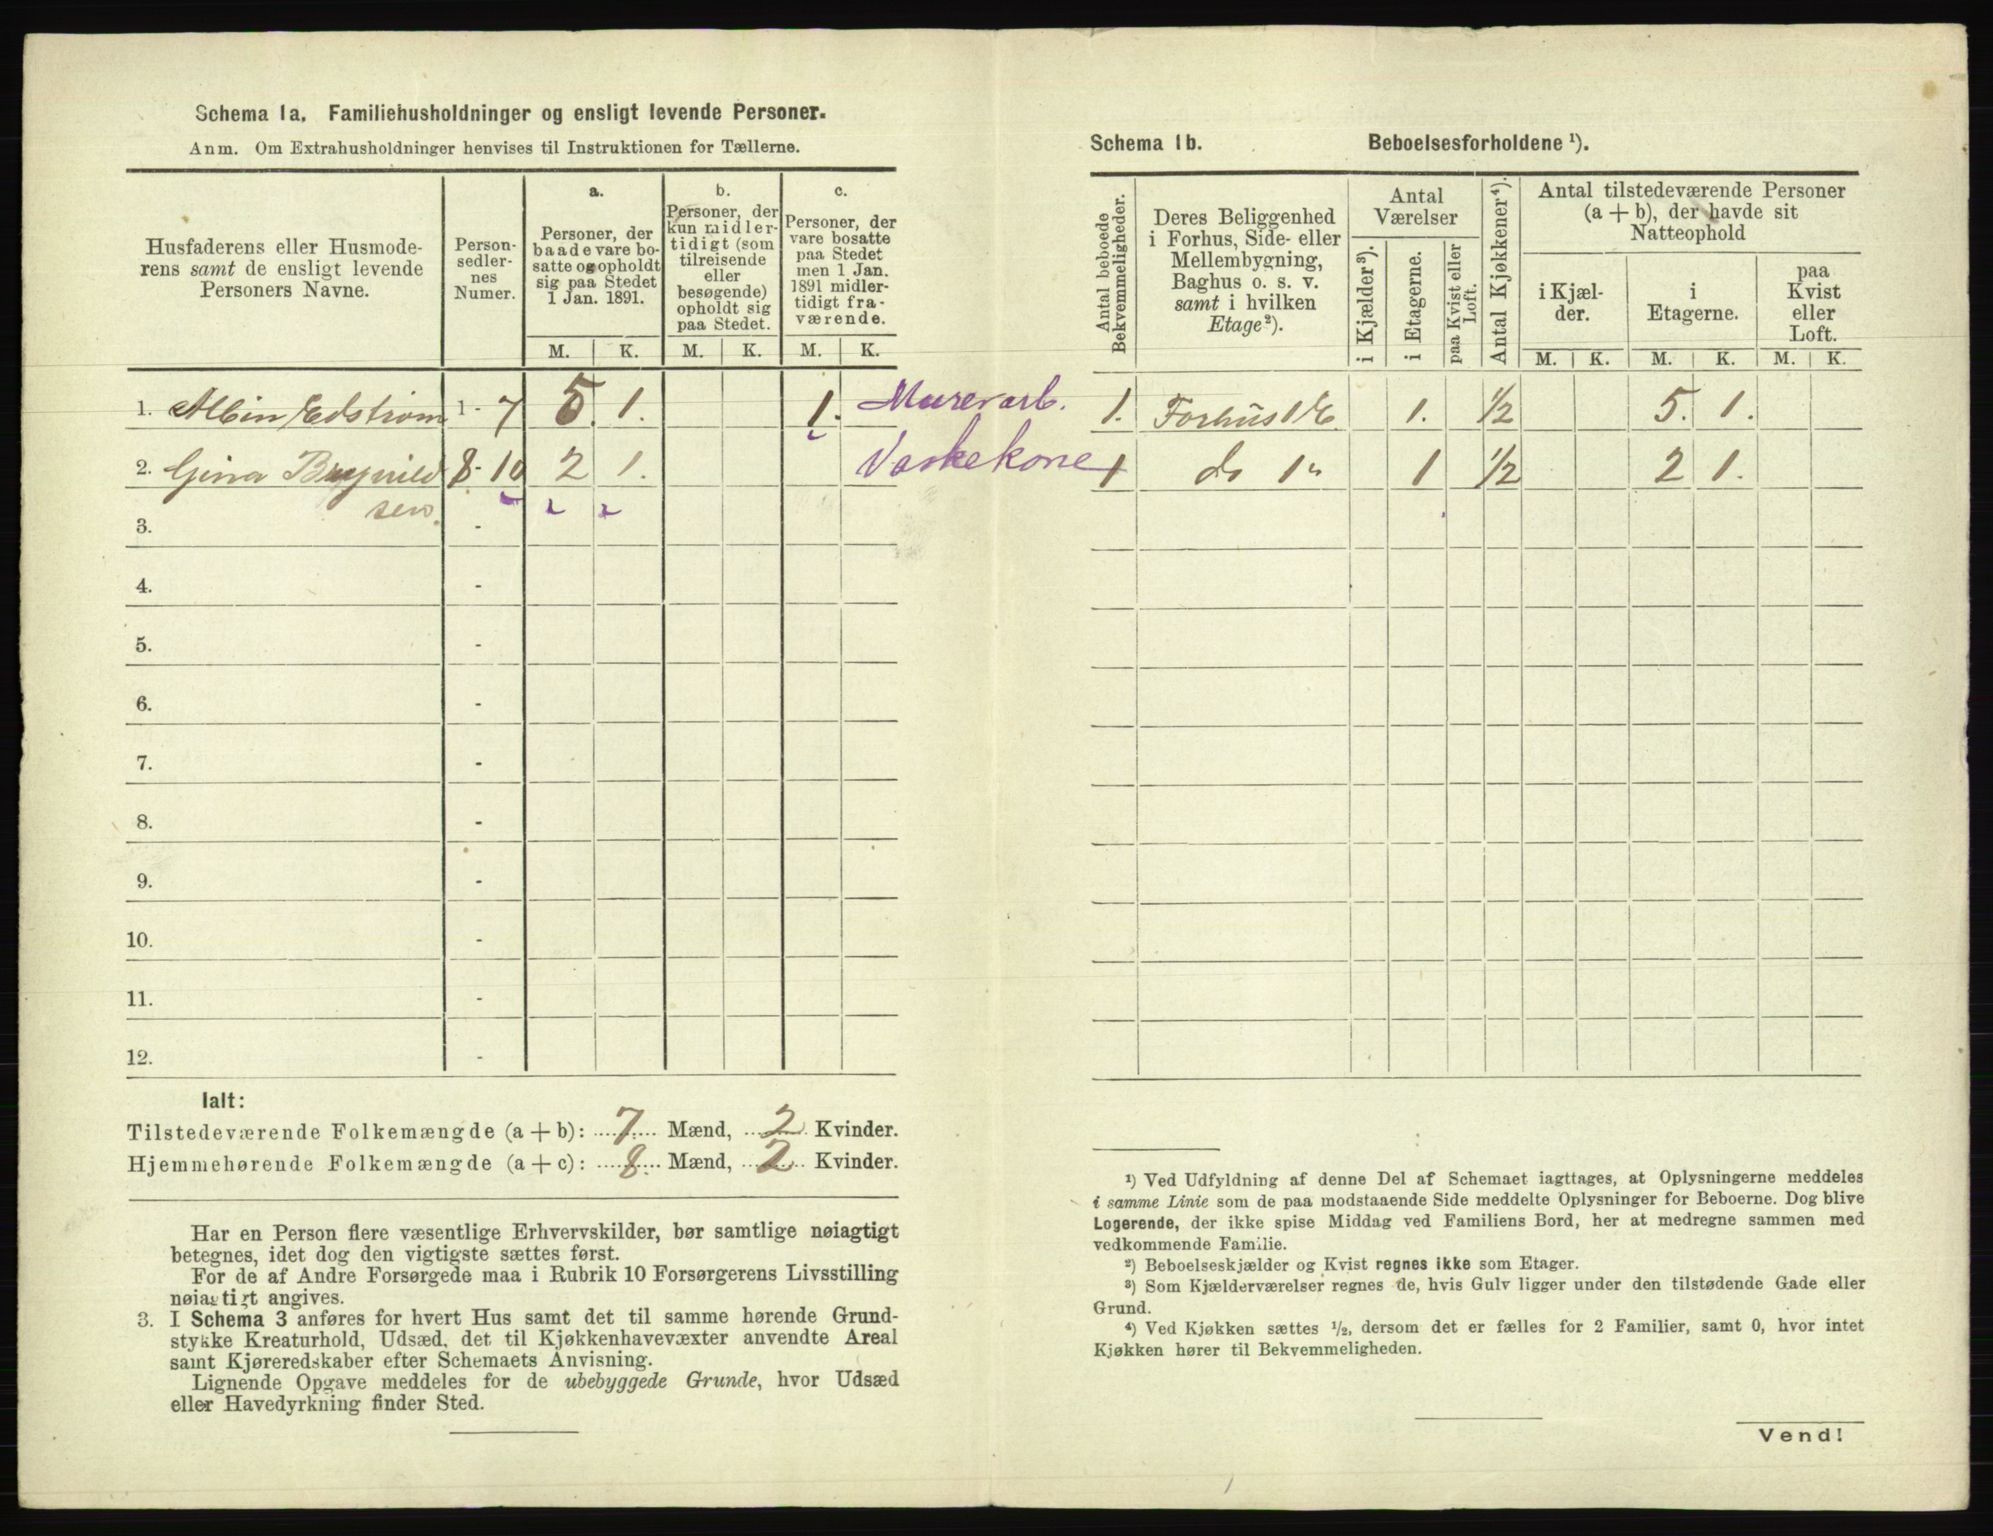 Schema 1a. Familiehusholdninger og ensligt levende Personer.
Anm. Om Extrahusholdninger henvises til Instruktionen for Tællerne.
Husfaderens eller Husmode-
rens samt de ensligt levende
Personers Navne.
Person-
sedler-
nes
Numer.
a.
Personer, der
baade vare bo-
satte og opholdt
sig paa Stedet
1 Jan. 1891.
M. K.
b.
Personer, der
kun midler-
tidigt (som
tilreisende
eller
besøgende)
opholdt sig
paa Stedet.
M. K.
c.
Personer, der
vare bosatte
paa Stedet
men 1 Jan.
1891 midler-
tidigt fra-
værende.
M. K.
1. Albin Edström 1 - 7 5. 1. 1. Murerarb.
2. Gina Brynild 8 - 10 2 1. Vaskekone
sen.
3. -
4. -
5. -
6. -
7. -
8. -
9. -
10. -
11. -
12. -
Ialt:
Tilstedeværende Folkemængde (a + b): 7 Mænd, 2 Kvinder.
Hjemmehørende Folkemængde (a + c): 8 Mænd, 2 Kvinder.
Har en Person flere væsentlige Erhvervskilder, bør samtlige nøiagtigt
betegnes, idet dog den vigtigste sættes først.
For de af Andre Forsørgede maa i Rubrik 10 Forsørgerens Livsstilling
nøiagtigt angives.
3. I Schema 3 anføres for hvert Hus samt det til samme hørende Grund-
stykke Kreaturhold, Udsæd, det til Kjøkkenhavevæxter anvendte Areal
samt Kjøreredskaber efter Schemaets Anvisning.
Lignende Opgave meddeles for de ubebyggede Grunde, hvor Udsæd
eller Havedyrkning finder Sted.
Schema 1b. Beboelsesforholdene ¹).
Antal beboede
Bekvemmeligheder.
Deres Beliggenhed
i Forhus, Side- eller
Mellembygning,
Baghus o. s. v.
samt i hvilken
Etage²).
Antal
Værelser
i Kjælder³).
i Etagerne.
paa Kvist eller
Loft.
Antal Kjøkkener⁴).
Antal tilstedeværende Personer
(a + b), der havde sit
Natteophold
i Kjæl-
der.
M. K.
i
Etagerne.
M. K.
paa
Kvist
eller
Loft.
M. K.
1. Forhus 1 E 1. 1/2 5. 1.
1 do 1 " 1 1/2 2 1.
¹) Ved Udfyldning af denne Del af Schemaet iagttages, at Oplysningerne meddeles
i samme Linie som de paa modstaaende Side meddelte Oplysninger for Beboerne. Dog blive
Logerende, der ikke spise Middag ved Familiens Bord, her at medregne sammen med
vedkommende Familie.
²) Beboelseskjælder og Kvist regnes ikke som Etager.
³) Som Kjælderværelser regnes de, hvis Gulv ligger under den tilstødende Gade eller
Grund.
⁴) Ved Kjøkken sættes ½, dersom det er fælles for 2 Familier, samt 0, hvor intet
Kjøkken hører til Bekvemmeligheden.
Vend!